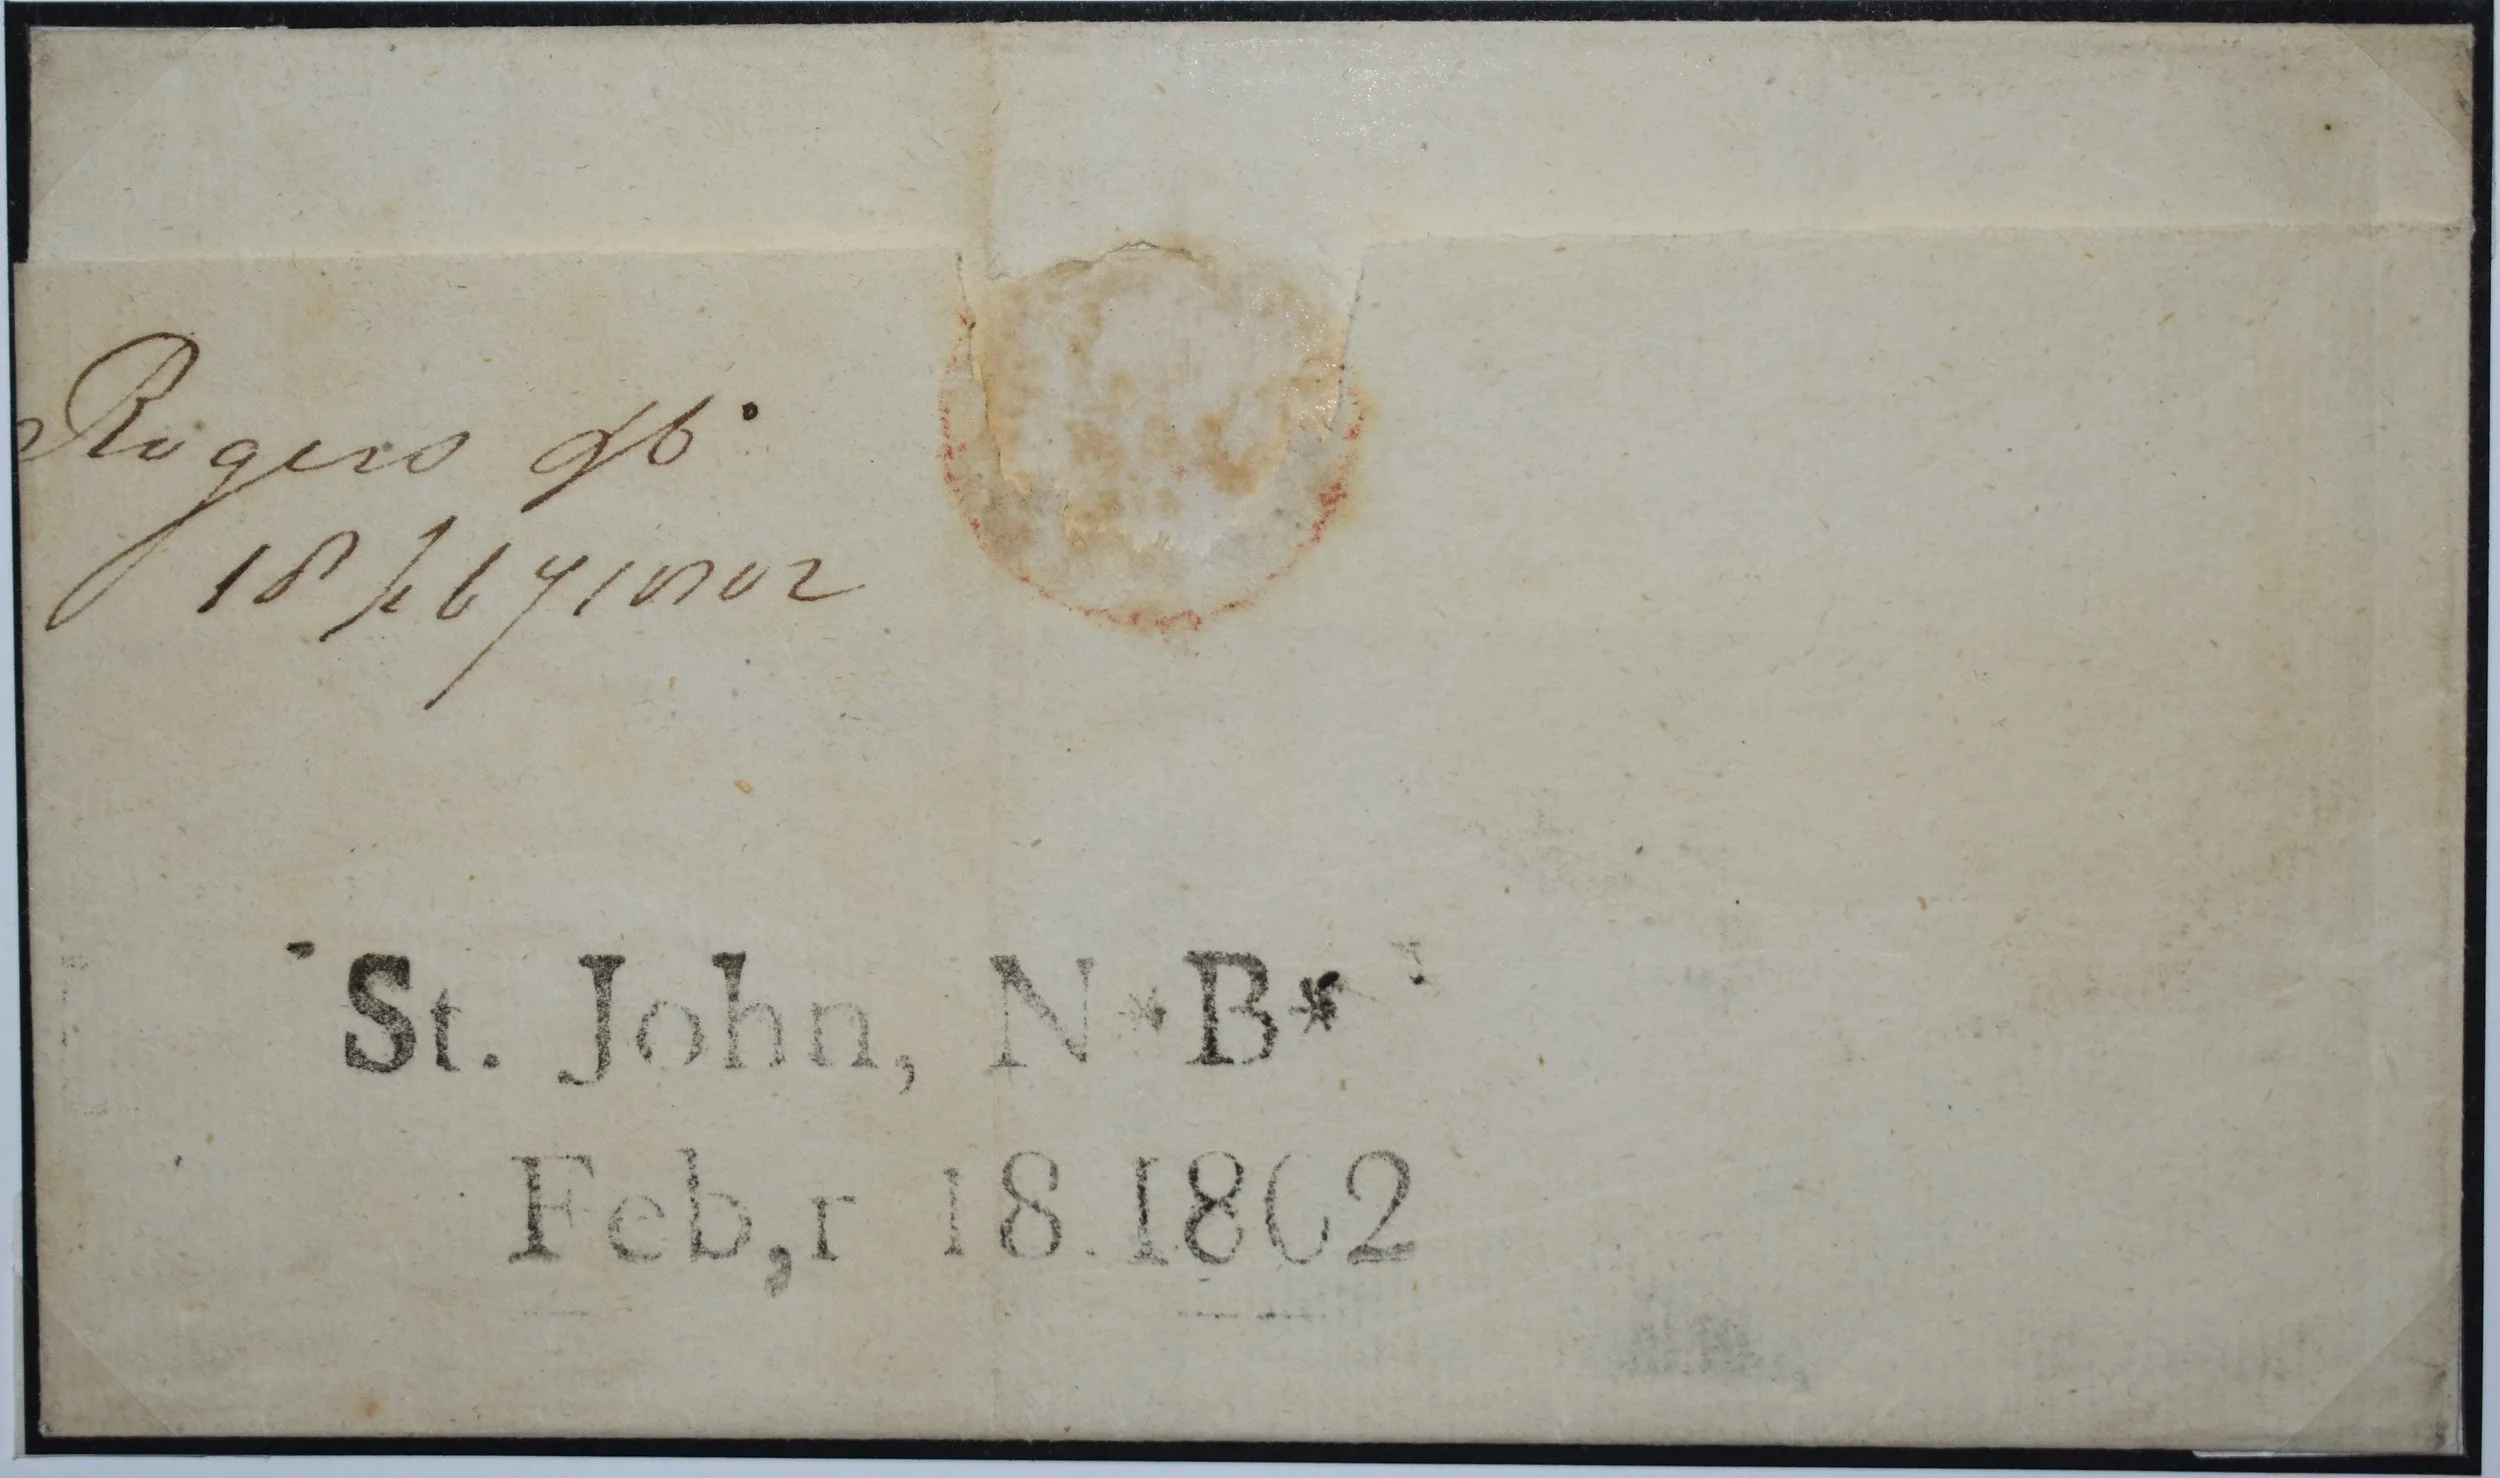 Rogers
18 feby 1802
St. John, N*B*
Feb,r 18.1802